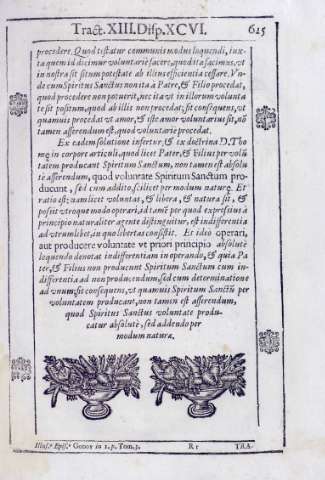 Tract. XIII. Disp. XCVI. 625
procedere. Quod testatur communis modus loquendi, iux-
ta quem id dicimur voluntariè facere, quod ita facimus, vt
in nostra sit situm potestate ab illius efficientia cessare. Vn-
de cum Spiritus Sanctus non sit à Patre, & Filio procedat,
quod procedere non potuerit, nec ita vt in illorum volunta
te sit positum, quod ab illis non procedat; fit consequens, vt
quamuis procedat vt amor, & iste amor voluntarius sit, nõ
tamen asserendum est, quod voluntariè procedat.
Ex eadem solutione infertur, & ex doctrina D. Tho
mę in corpore articuli, quod licet Pater, & Filius per volũ
tatem producant Spiritum Sanctum, non tamen est absolu
tè asserendum, quod voluntate Spiritum Sanctum pro-
ducunt, sed cum addito, scilicet per modum naturę. Et
ratio est: quam licet voluntas, & libera, & natura sit, &
possit vtroque modo operari, id tamẽ per quod expressius à
principio naturaliter agente distinguitur, est indifferentia
ad vtrumlibet, in quo libertas consistit. Et ideò operari,
aut producere voluntate vt priori principio absolutè
loquendo denotat indifferentiam in operando, & quia Pa
ter, & Filius non producunt Spiritum Sanctum cum in-
differentia ad non producendum, sed cum determinatione
ad vnum; fit consequens, vt quamuis Spiritum Sanctũ per
voluntatem producant, non tamen est asserendum,
quod Spiritus Sanctus voluntate produ-
catur absolutè, sed addendo per
modum naturæ.
Illus.ᵉ Epis.ᵉ Godoy in 1. p. Tom. 3. Rr TRA-